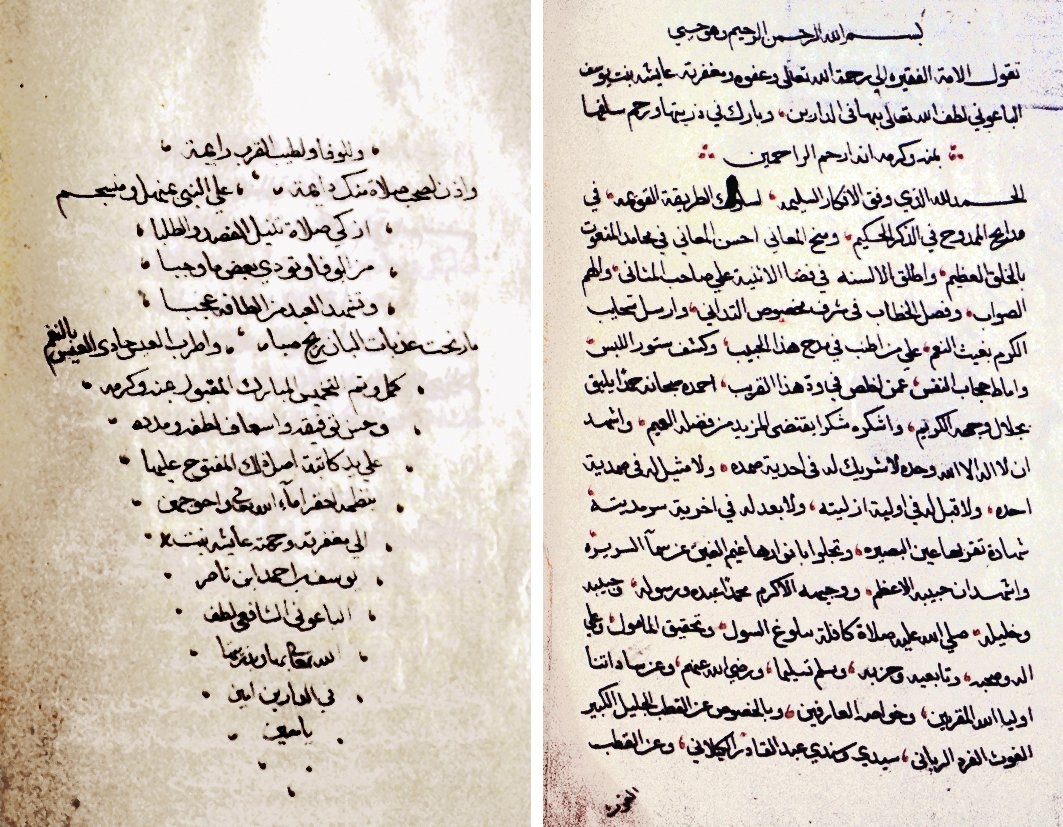 بسم الله الرحمن الرحيم وهو حسبي
تقول الامة الفقيرة الى رحمة الله تعالى وعفوه ومغفرته عايشة بنت يوسف
الباعوني لطف الله تعالى بها في الدارين وبارك في ذريتها ورحم سلفها
بمنه وكرمه انه ارحم الراحمين
الحمد لله الذي وفق الافكار السليمه لسلوك الطريقة القويمه في
مدايح الممدوح في الذكر الحكيم ومنح المعاني احسن المعاني في محامد المنعوت
بالخلق العظيم واطلق الالسنه في فضا الاثنية على صاحب المثاني والهم
الصواب وفصل الخطاب في شرف مخصوص التداني وارسل سحايب
الكرم بغيث النعم على من اطنب في مدح هذا الحبيب وكشف ستور اللبس
واماط حجاب النفس عمن اخلص في ود هذا القريب احمده سبحانه حمدا يليق
بجلال وجهه الكريم واشكره شكرا يقتضي المزيد من فضله العميم واشهد
ان لا اله الا الله وحده لا شريك له في احدية صمده ولا مثيل له في صمدية
احده ولا قبل له في اولية ازليته ولا بعد له في اخرية سرمديته
شهادة تقر بها عين البصيره وتجلوا بانوارها غيم الغين عن سمآ السريره
واشهد ان حبيبه الاعظم ووجيهه الاكرم محمدا عبده ورسوله وحبيبه
وخليله صلى الله عليه صلاة كافلة ببلوغ السول وتحقيق المامول وعلى
اله وصحبه وتابعيه وحزبه وسلم تسليما ورضي الله عنهم وعن ساداتنا
اوليا الله المقربين وخواصه العارفين وبالخصوص عن القطب الجليل الكبير
الغوث الفرد الرباني سيدي وسندي عبد القادر الكيلاني وعن القطب
وللوفا ولطيب القرب رايمة
واذن لصحب صلاة منك دايمة على النبي بمنهل ومنسجم
ازكى صلاة تنيل القصد والطلبا
من الوفا وتودي بعض ما وجبا
وتشهد العبد من الطافه عجبا
ما رنحت عذبات البان ريح صبا واطرب العيس حادي العيس بالنغم
كمل وتم التخميس المبارك المقبول بمنه وكرمه
وحسن توفيقه واسعاف لطفه ومدده
على يد كاتبة اصله المفتوح عليها
بنظمه احقر امآء الله تعالى واحوجهن
الى مغفرته ورحمته عايشه بنت
يوسف بن احمد ابن ناصر
الباعوني الشافعي لطف
الله تعالى بها وبذريتها
في الدارين امين
يا معين